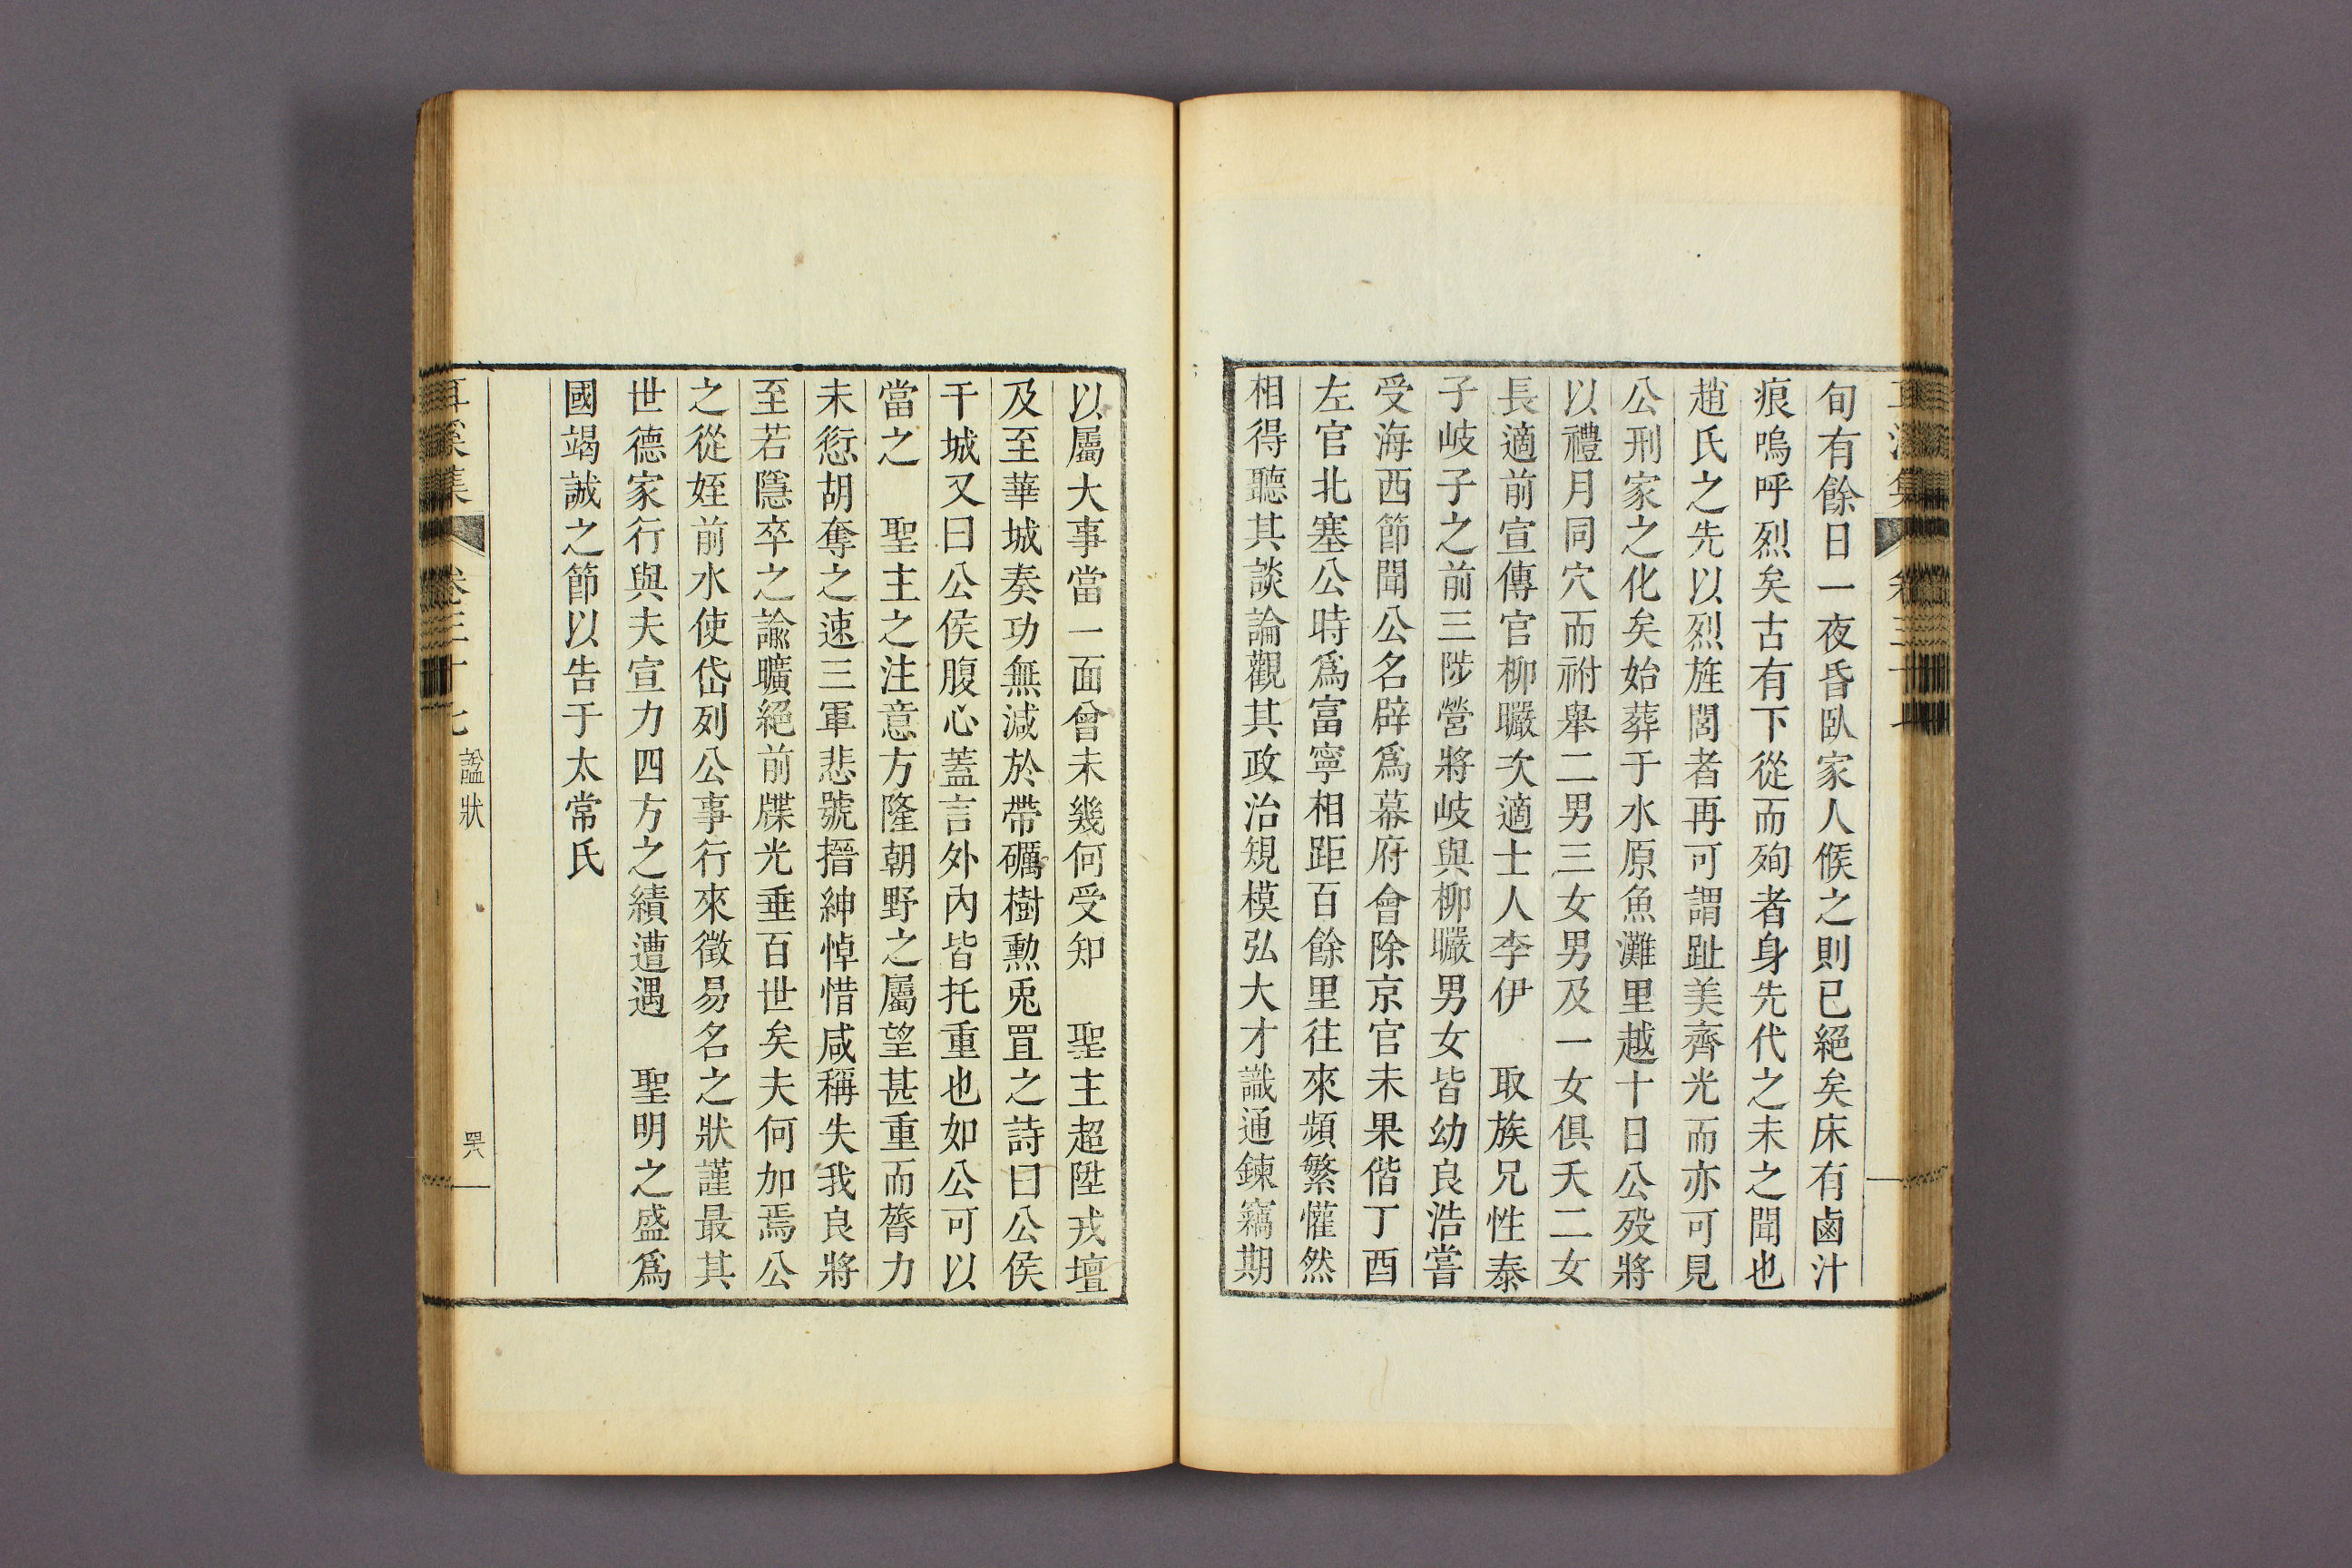 旬有餘日一夜昏臥家人候之則已絕矣床有鹵汁
痕嗚呼烈矣古有下從而殉者身先代之未之聞也
趙氏之先以烈旌閭者再可謂趾美齊光而亦可見
公刑家之化矣始葬于水原魚灘里越十日公歿將
以禮月同穴而祔舉二男三女男及一女俱夭二女
長適前宣傳官柳曮次適士人李伊 取族兄性泰
子岐子之前三陟營將岐與柳曮男女皆幼良浩嘗
受海西節聞公名辟爲幕府會除京官未果偕丁酉
左官北塞公時爲富寧相距百餘里往來頻繁懽然
相得聽其談論觀其政治規模弘大才識通鍊竊期
以屬大事當一面曾未幾何受知 聖主超陞戎壇
及至華城奏功無減於帶礪樹勳兎罝之詩曰公侯
干城又曰公侯腹心蓋言外內皆托重也如公可以
當之 聖主之注意方隆朝野之屬望甚重而膂力
未愆胡奪之速三軍悲號搢紳悼惜咸稱失我良將
至若隱卒之諭曠絕前牒光垂百世矣夫何加焉公
之從姪前水使岱列公事行來徵易名之狀謹最其
世德家行與夫宣力四方之績遭遇 聖明之盛爲
國竭誠之節以告于太常氏
耳溪集 卷三十七 諡狀